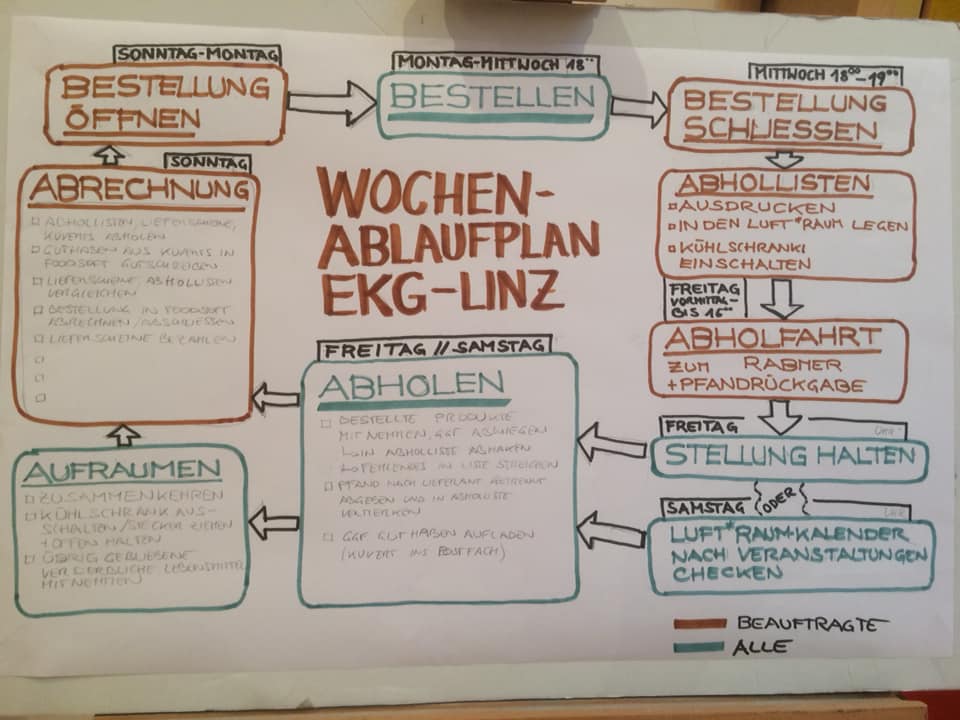 SONNTAG-MONTAG
BESTELLUNG
ÖFFNEN
MONTAG-MITTWOCH 18⁰⁰
BESTELLEN
MITTWOCH 18⁰⁰-19⁰⁰
BESTELLUNG
SCHLIESSEN
ABHOLLISTEN
AUSDRUCKEN
IN DEN LUFT*RAUM LEGEN
KÜHLSCHRANK
EINSCHALTEN
WOCHEN-
ABLAUFPLAN
EKG-LINZ
FREITAG
VORMITTAG-
BIS 16⁰⁰
ABHOLFAHRT
ZUM RABMER
+PFANDRÜCKGABE
FREITAG
STELLUNG HALTEN
ODER
SAMSTAG
LUFT*RAUM-KALENDER
NACH VERANSTALTUNGEN
CHECKEN
FREITAG // SAMSTAG
ABHOLEN
BESTELLTE PRODUKTE
MITNEHMEN, GGF ABWIEGEN
IN ABHOLLISTE ABHAKEN
FEHLENDES IN LISTE STREICHEN
PFAND NACH LIEFERANT GETRENNT
ABGEBEN UND IN ABHOLLISTE
VERMERKEN
GGF GUTHABEN AUFLADEN
(KUVERT INS POSTFACH)
AUFRÄUMEN
ZUSAMMENKEHREN
KÜHLSCHRANK AUS-
SCHALTEN/STECKER ZIEHEN
+OFFEN HALTEN
ÜBRIG GEBLIEBENE
VERDERBLICHE LEBENSMITTEL
MITNEHMEN
SONNTAG
ABRECHNUNG
ABHOLLISTEN, LIEFERSCHEINE,
KUVERTS ABHOLEN
GUTHABEN AUS KUVERTS IN
FOODSOFT GUTSCHREIBEN
LIEFERSCHEINE, ABHOLLISTEN
VERGLEICHEN
BESTELLUNG IN FOODSOFT
ABRECHNEN/ABSCHLIESSEN
LIEFERSCHEINE BEZAHLEN
BEAUFTRAGTE
ALLE